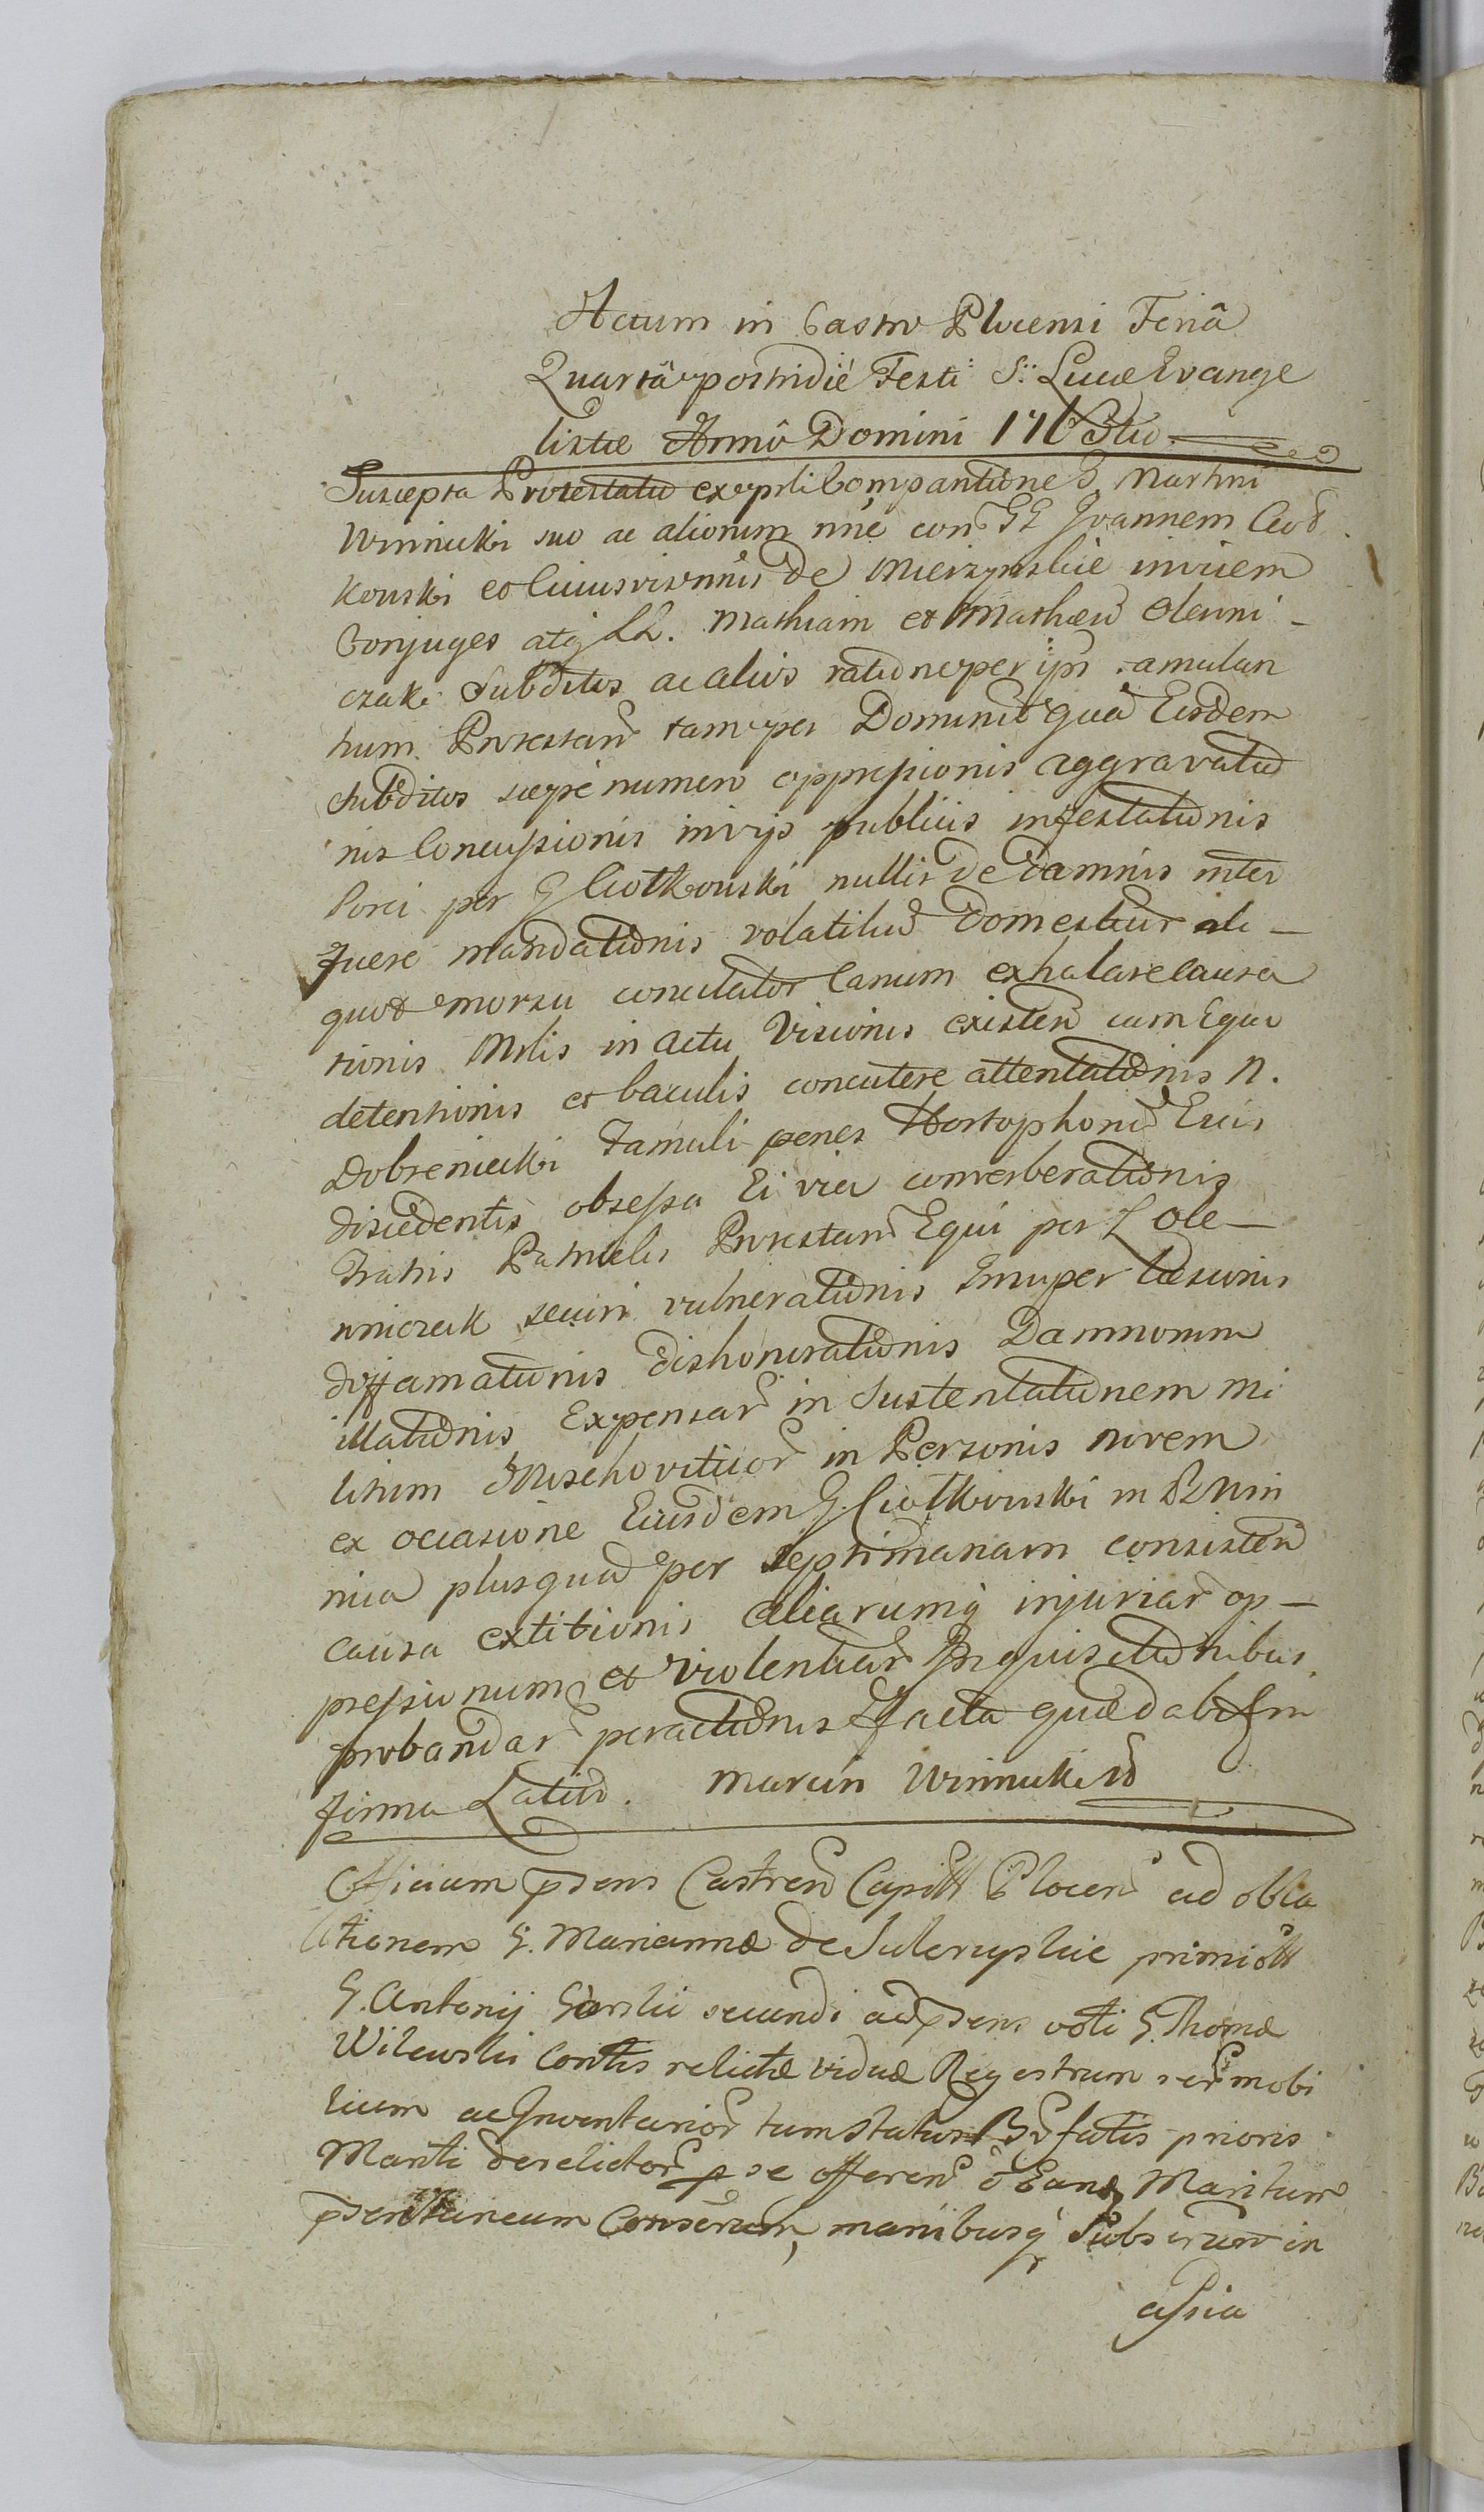 Actum in Castro Plocensi Feriâ
Quartâ postridie Festi S: Lucæ Evange
listæ Annô Domini 176
Suscepta Protestatio ex psli Comparitione G. Martini
Winnicki suo ac aliorum nne con GG Joannem Ciot
kowski et Cunis de Mierzynskie invicem
Conjuges atq LL. Mathiam et Mathæu Olenni -
czaki Subditos ac alios ratione per ipsi famulan
tium Protestan tam per Dominu qua Eiusdem
Subditos sæpe numero oppressionis aggravatio
nis Concussionis in vijs publicis infestationis
Porci per G Ciotkowski nullis de damnis inter
fuere mandationis volatiliu domesticor ali -
quot morsu concitator Canum exhalare causa
tionis Mtis in actu Visionis existen cum Equi
detentionis et baculis concutere attentationis N.
Dobrenicki Famuli penes Ejus
discedentis obsessa Ei via converberationis
Fratris Patruelis Protestan Equi per L Ole -
nniczak securi vulnerationis Insuper læsionis
diffamationis dishonorationis Damnorum
illationis Expensar in Sustentationem mi
litum Moschoviticor in Personis novem
ex occasione Eiusdem G. Ciotkowski in
nica plusquam per septimanam consisten
causa extitionis aliarumq injuriar op -
pressionum et violentiar Inquisitionibus
probandar peractionis facta quæ dab in
forma Latiu. Marcin Winnicki

Officium psens Castren Capitt Plocen ad obla
tionem G. Mariannæ de Sulerzyskie primi
G. Antonij secundi ad psens voti G. Thomæ
Wilewski Contis relictæ viduæ Regestrum rer mobi
lium ac Inventarior tum status fatis prioris
Mariti derelictor p se offeren Maritum
Conserum, manibusq Subscrum in
assia